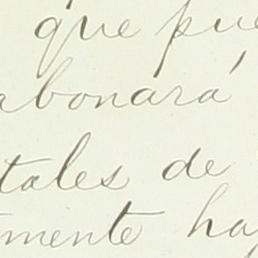 que pue
abonará
tales de
mente hay